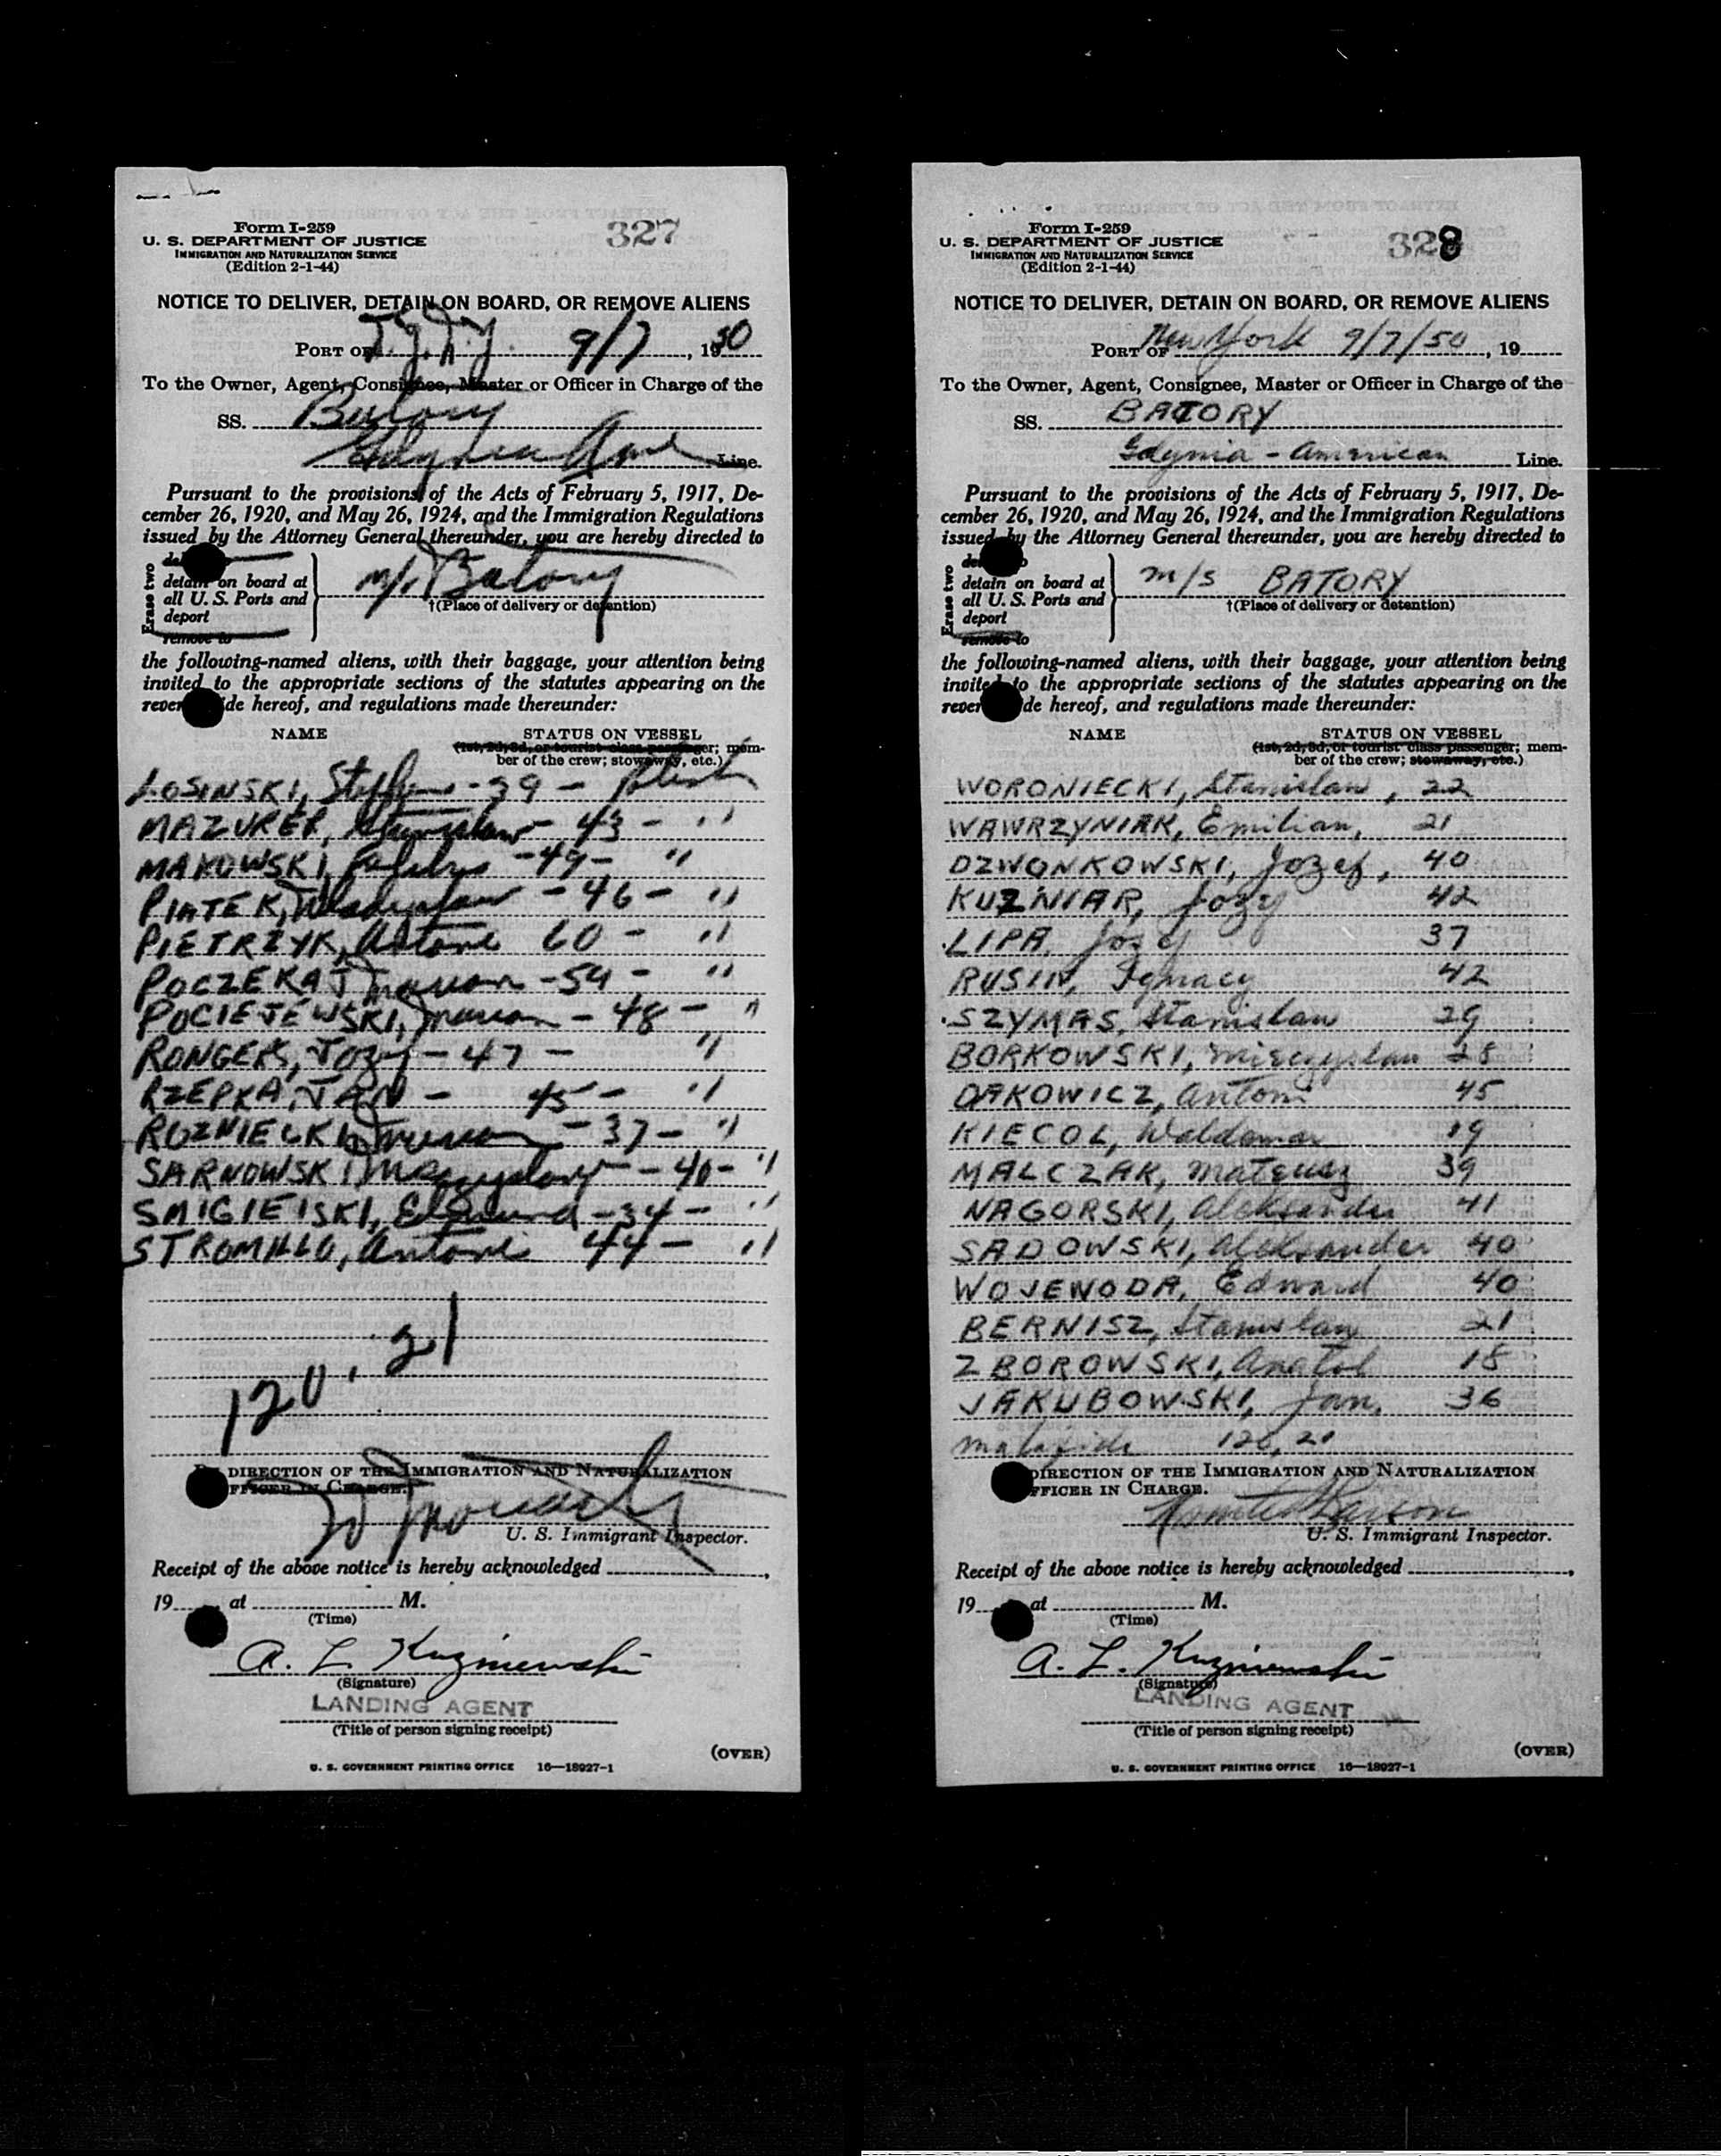 327
Form I-259
U. S. DEPARTMENT OF JUSTICE
IMMIGRATION AND NATURALIZATION SERVICE
(Edition 2-1-44)
NOTICE TO DELIVER, DETAIN ON BOARD, OR REMOVE ALIENS
PORT OF 9/7, 1950
To the Owner, Agent, Consignee, Master or Officer in Charge of the
SS. Batory
Gdynia Ame Line.
Pursuant to the provisions of the Acts of February 5, 1917, De-
cember 26, 1920, and May 26, 1924, and the Immigration Regulations
issued by the Attorney General thereunder, you are hereby directed to
Erase two
detain on board at
all U. S. Ports and
deport
remove to
m/s Batory
†(Place of delivery or detention)
the following-named aliens, with their baggage, your attention being
invited to the appropriate sections of the statutes appearing on the
reverse side hereof, and regulations made thereunder:
NAME STATUS ON VESSEL
(1st, 2d, 3d, or tourist class passenger; mem-
ber of the crew; stowaway, etc.)
LOSINSKI, - 39 - Polish
MAZUREK, Stanislaw - 43 - "
MAKOWSKI, - 49 - "
PIATEK, Wladyslaw - 46 - "
PIETRZYK, Antoni 60 - "
POCZEKAJ Marian - 54 - "
POCIEJEWSKI, Marian - 48 - "
RONGERS, Jozef - 47 - "
RZEPKA, JAN - 45 - "
ROZNIECKI, Marian - 37 - "
SARNOWSKI Mieczyslaw - 40 - "
SMIGIELSKI, Edmund - 34 - "
STROMILLO, Antoni 44 - "
120.21
By DIRECTION OF THE IMMIGRATION AND NATURALIZATION
OFFICER IN CHARGE.
U. S. Immigrant Inspector.
Receipt of the above notice is hereby acknowledged ,
19 at M.
(Time)
A. L. Kuzniewski
(Signature)
LANDING AGENT
(Title of person signing receipt)
(OVER)
U. S. GOVERNMENT PRINTING OFFICE 16—18927-1
328
Form I-259
U. S. DEPARTMENT OF JUSTICE
IMMIGRATION AND NATURALIZATION SERVICE
(Edition 2-1-44)
NOTICE TO DELIVER, DETAIN ON BOARD, OR REMOVE ALIENS
PORT OF New York 9/7/50, 19
To the Owner, Agent, Consignee, Master or Officer in Charge of the
SS. BATORY
Gdynia - American Line.
Pursuant to the provisions of the Acts of February 5, 1917, De-
cember 26, 1920, and May 26, 1924, and the Immigration Regulations
issued by the Attorney General thereunder, you are hereby directed to
Erase two
detain on board at
all U. S. Ports and
deport
remove to
m/s BATORY
†(Place of delivery or detention)
the following-named aliens, with their baggage, your attention being
invited to the appropriate sections of the statutes appearing on the
reverse side hereof, and regulations made thereunder:
NAME STATUS ON VESSEL
(1st, 2d, 3d, or tourist class passenger; mem-
ber of the crew; stowaway, etc.)
WORONIECKI, Stanislaw, 22
WAWRZYNIAK, Emilian, 21
DZWONKOWSKI, Jozef, 40
KUZNIAR, Jozef 42
LIPA, Jozef 37
RUSIN, Ignacy 42
SZYMAS, Stanislaw 29
BORKOWSKI, Mieczyslaw 28
DAKOWICZ, Antoni 45
KIECOL, Waldemar 19
MALCZAK, Mateusz 39
NAGORSKI, Aleksander 41
SADOWSKI, Aleksander 40
WOJEWODA, Edward 40
BERNISZ, Stanislaw 21
ZBOROWSKI, Anatol 18
JAKUBOWSKI, Jan, 36
malafide 120.21
By DIRECTION OF THE IMMIGRATION AND NATURALIZATION
OFFICER IN CHARGE.
U. S. Immigrant Inspector.
Receipt of the above notice is hereby acknowledged ,
19 at M.
(Time)
A. L. Kuzniewski
(Signature)
LANDING AGENT
(Title of person signing receipt)
(OVER)
U. S. GOVERNMENT PRINTING OFFICE 16—18927-1